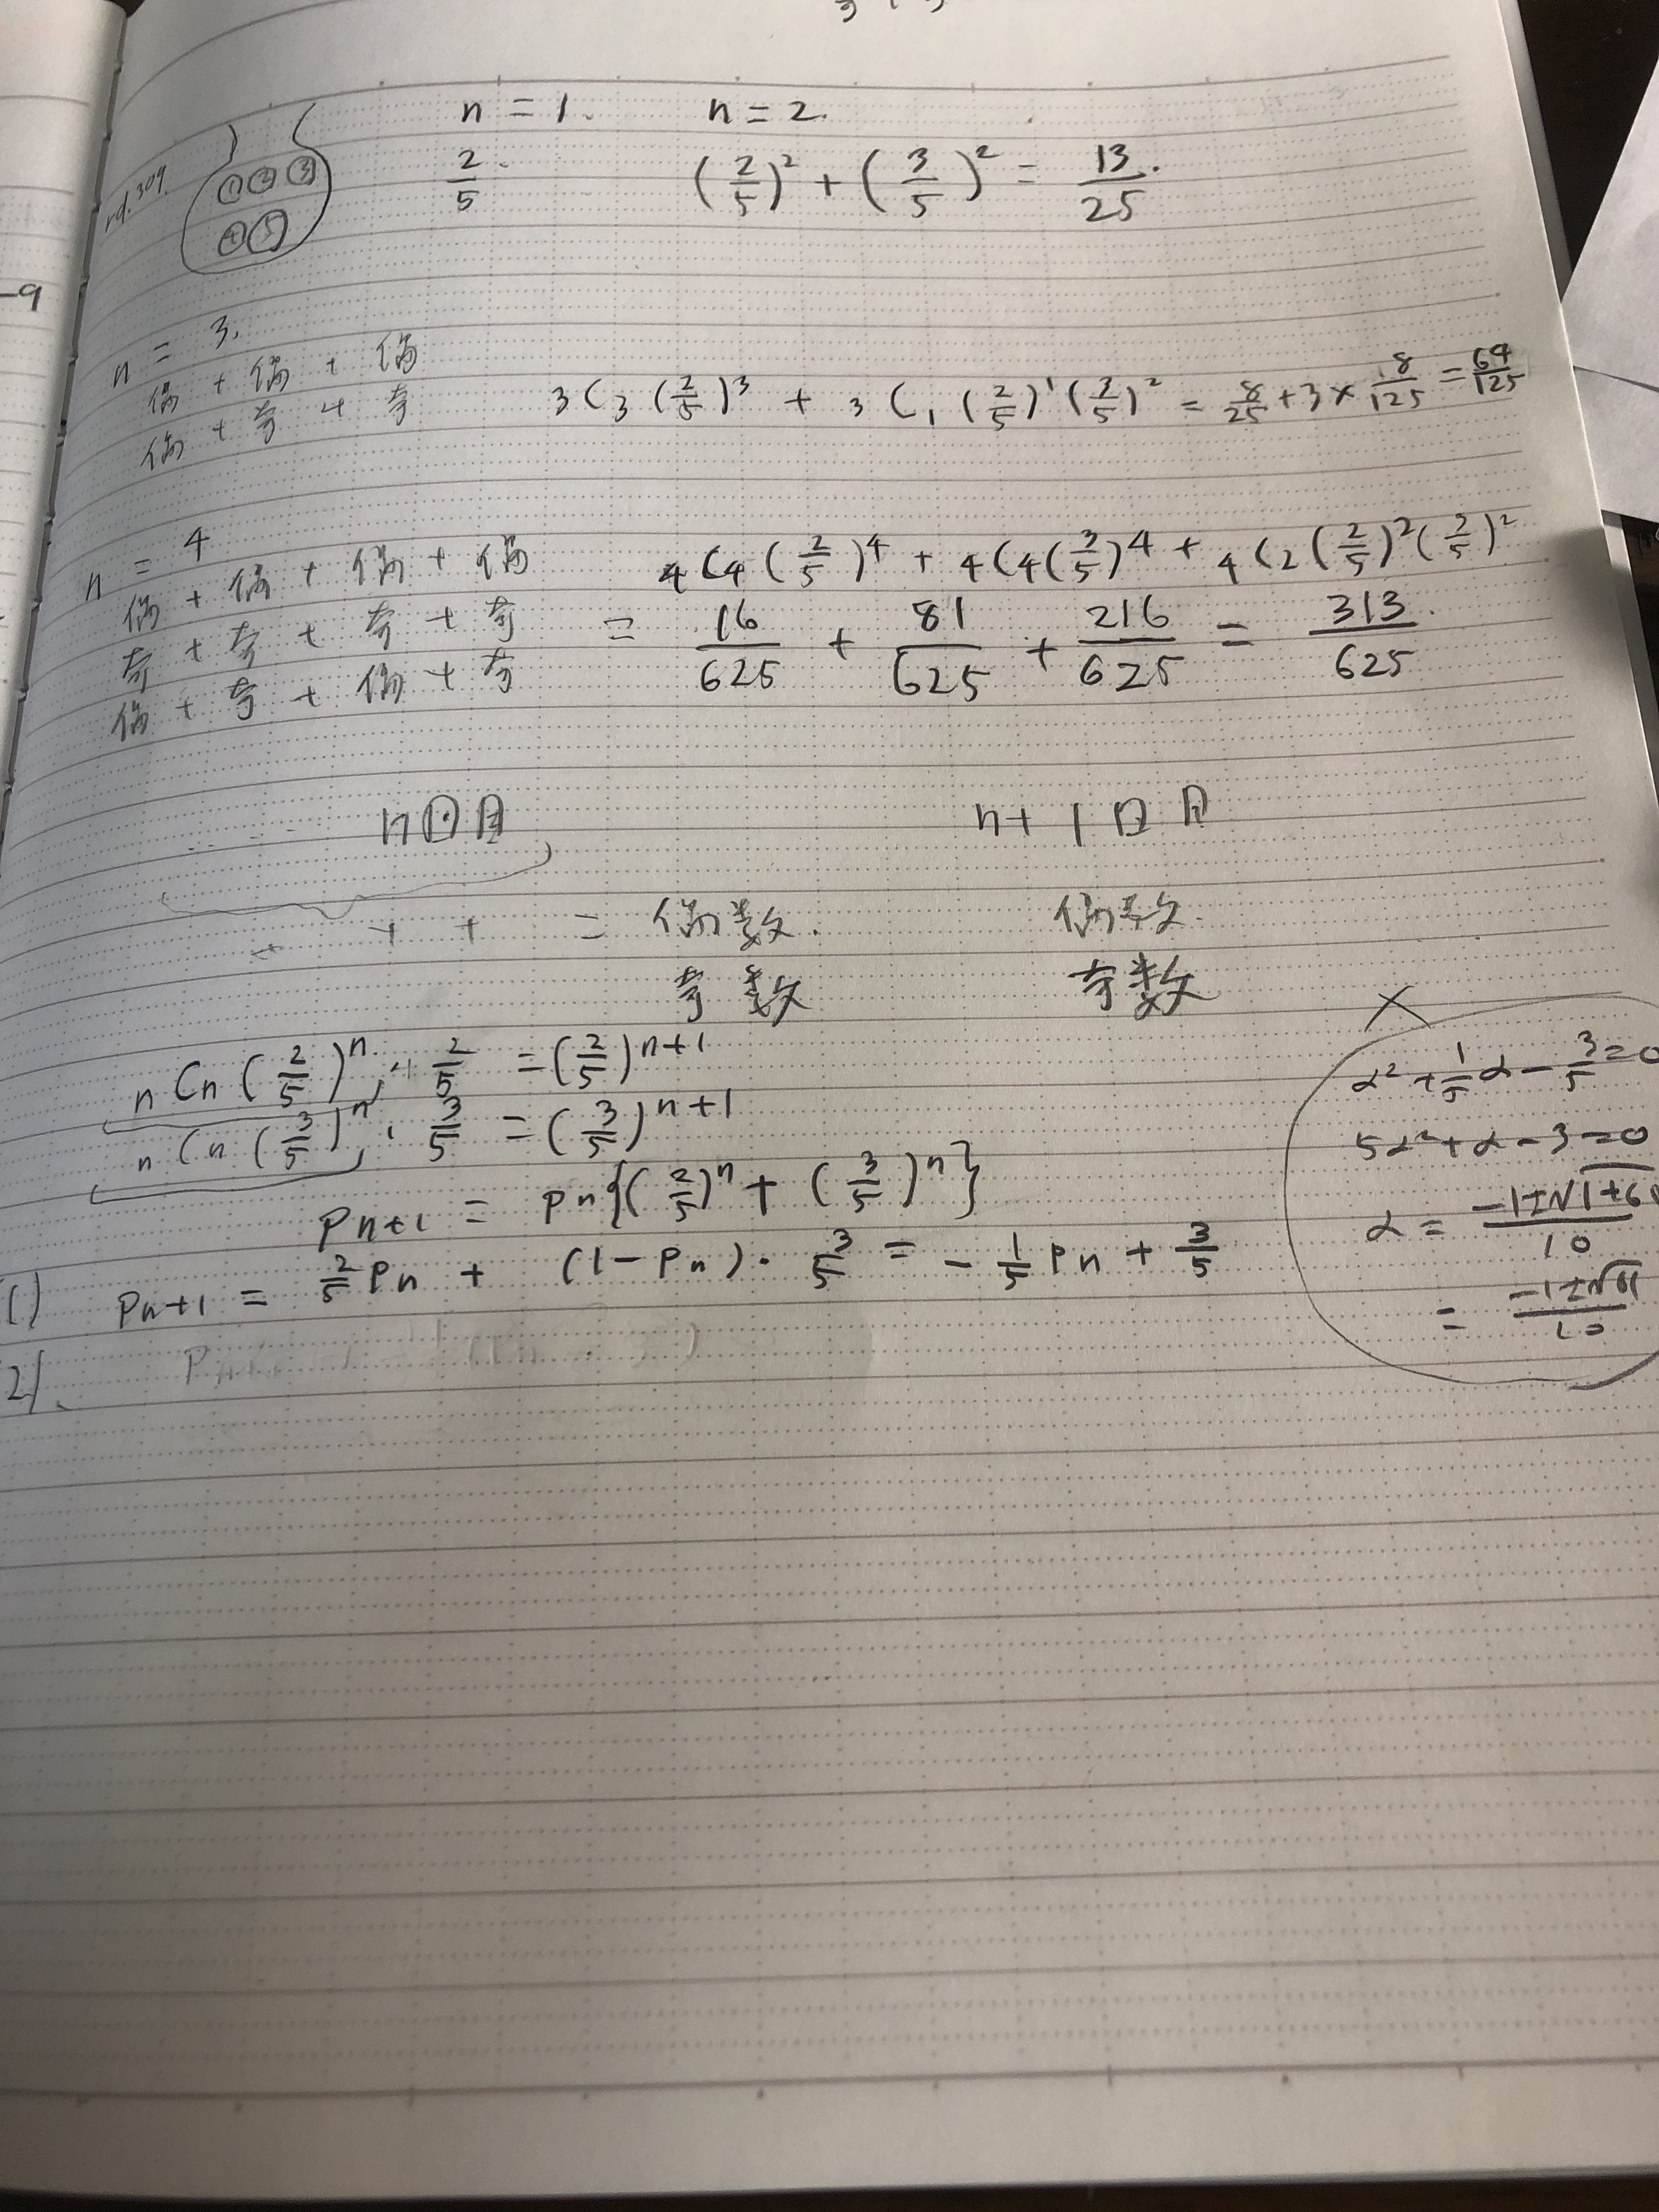 -9
rd.309.
① ② ③
④ ⑤
n = 1. n = 2.
2/5. (2/5)² + (3/5)² = 13/25.
n = 3.
偶 + 偶 + 偶
偶 + 奇 + 奇
3C3 (2/5)³ + 3C1 (2/5)¹ (3/5)² = 8/25 + 3 × 18/125 = 64/125
n = 4
偶 + 偶 + 偶 + 偶
奇 + 奇 + 奇 + 奇
偶 + 奇 + 偶 + 奇
4C4 (2/5)⁴ + 4C4 (3/5)⁴ + 4C2 (2/5)² (2/5)²
= 16/625 + 81/625 + 216/625 = 313/625.
n回目 n+1回目
+ + + = 偶数. 偶数.
奇数 奇数
nCn (2/5)ⁿ · 2/5 = (2/5)ⁿ⁺¹
nCn (3/5)ⁿ · 3/5 = (3/5)ⁿ⁺¹
Pn+1 = Pn{(2/5)ⁿ + (3/5)ⁿ}
(1) Pn+1 = 2/5 Pn + (1 - Pn) · 3/5 = - 1/5 Pn + 3/5
(2).
×
α² + 1/5 α - 3/5 = 0
5α² + α - 3 = 0
α = (-1±√1+6)/10
= (-1±√61)/10